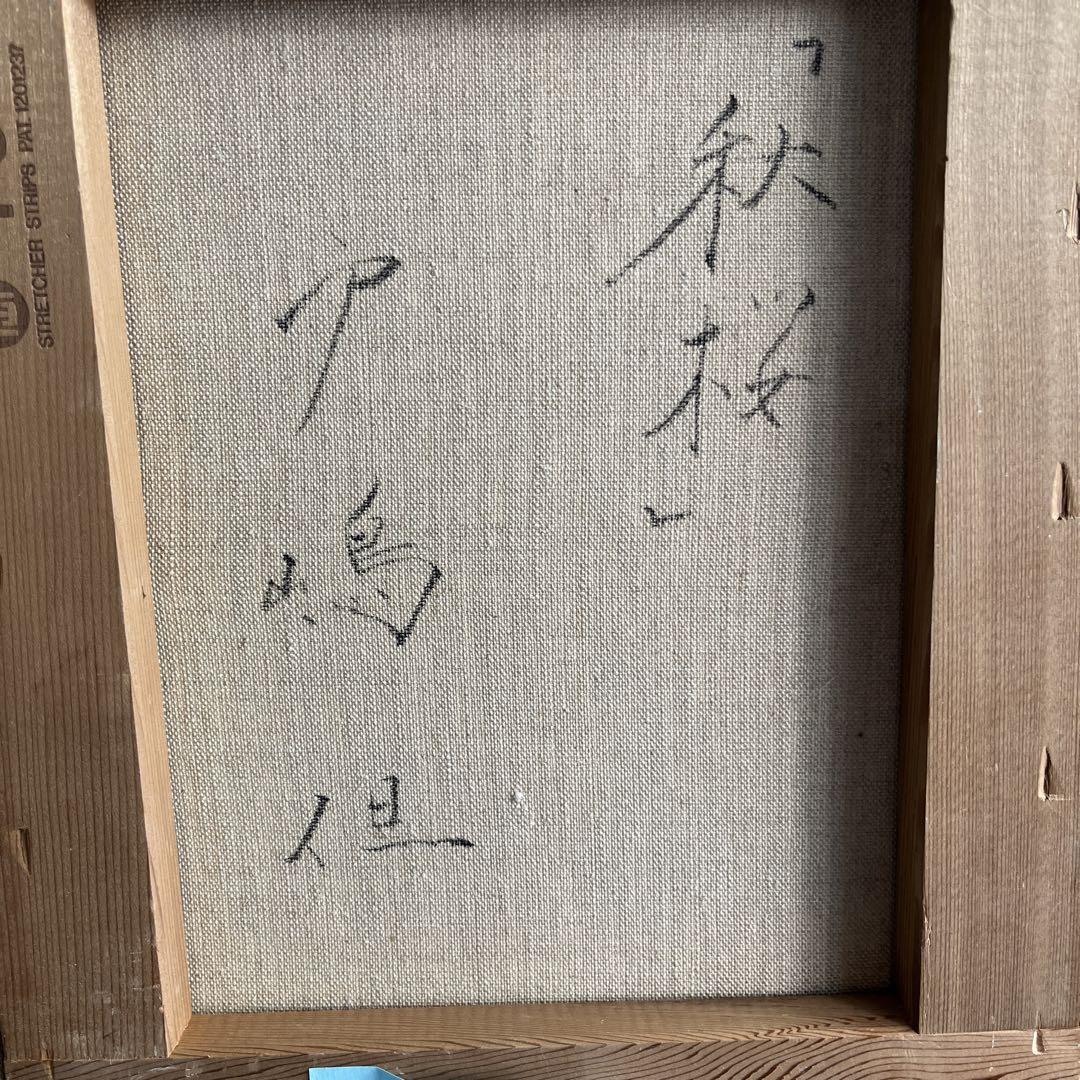 「秋桜」
戸嶋
但
STRETCHER STRIPS PAT 1201237